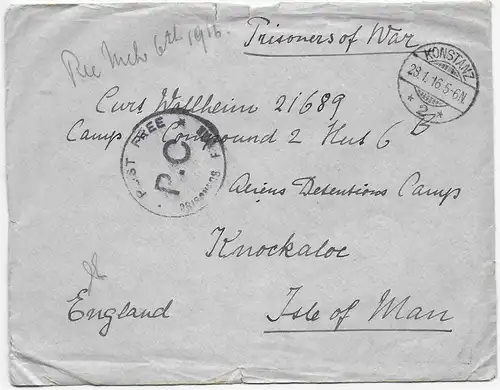 Rec Mch 6th 1916.
Prisoners of War
KONSTANZ
29.1.16.5-6N
* 2 *
Curt Wallheim 21689
Camp Compound 2 Hut 6 B
POST FREE
P.C.
PRISONERS
Aliens Detentions Camp
Knockaloe
England
Isle of Man